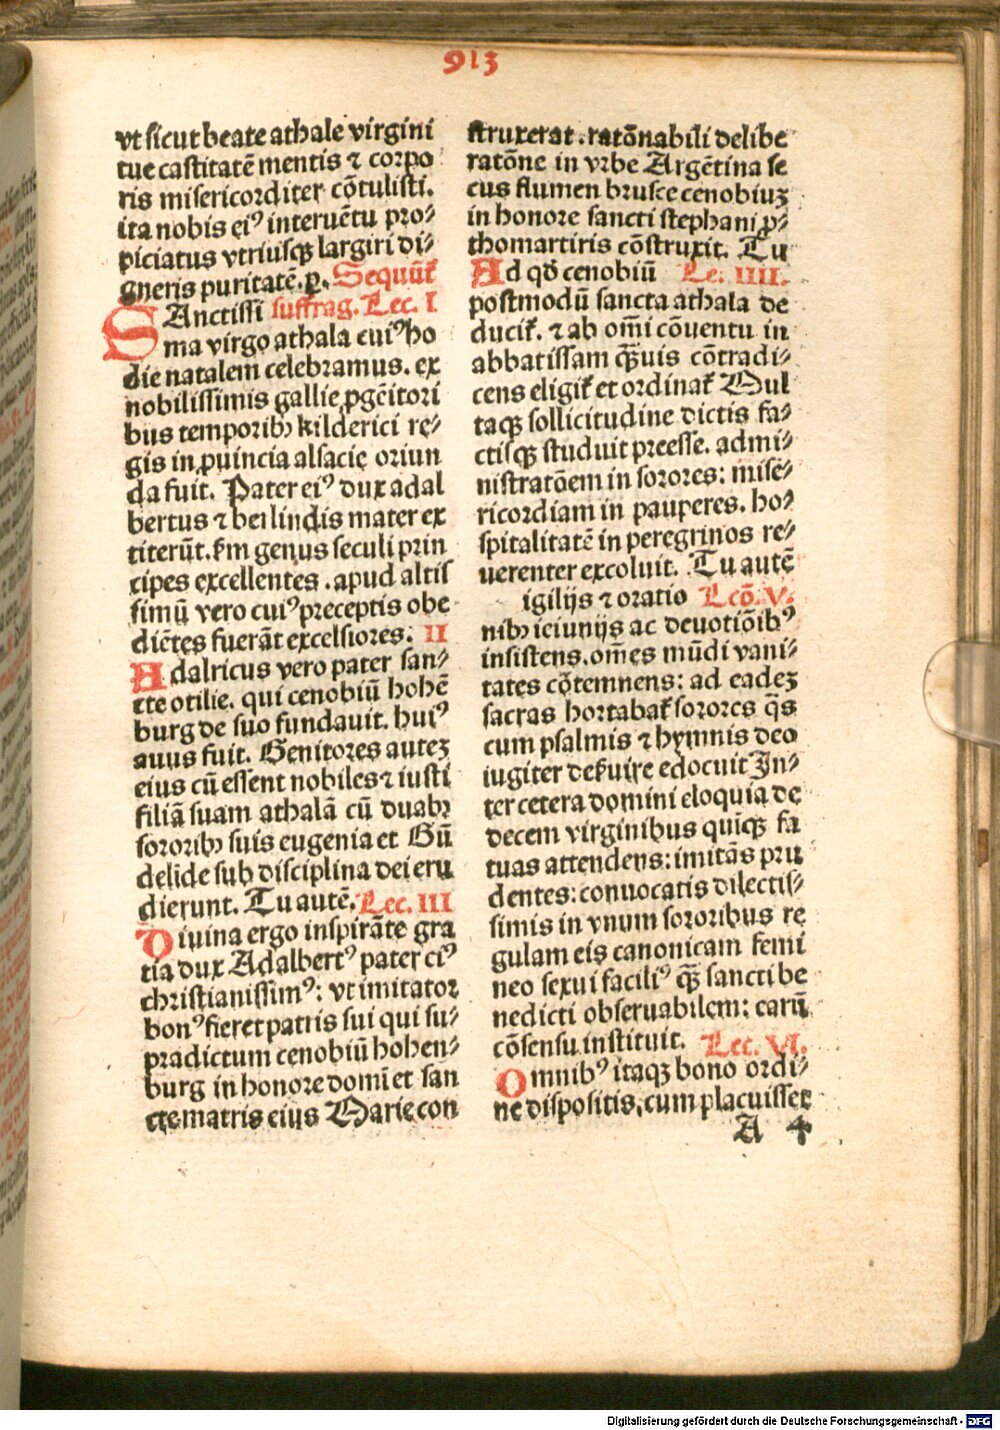 913
vt sicut beate athale virgini
tue castitatē mentis ⁊ corpo
ris misericorditer cōtulisti.
ita nobis eiꝰ interuētu pro⸗
piciatus vtriusqꝫ largiri di⸗
gneris puritatē. ꝑ. Sequūt̄
SAnctissi suffrag. Lec. I
ma virgo athala cuiꝰ ho
die natalem celebramus. ex
nobilissimis gallie ꝓgēitori
bus temporibꝫ kilderici re⸗
gis in ꝓuincia alsacię oriun
da fuit. Pater eiꝰ dux adal
bertus ⁊ berlindis mater ex
titerūt. ẜm genus seculi prin
cipes excellentes . apud altis
simū vero cuiꝰ preceptis obe
diētes fuerāt excelsiores. II
Adalricus vero pater san⸗
cte otilie. qui cenobiū hohē
burg de suo fundauit. huiꝰ
auus fuit. Genitores auteꝫ
eius cū essent nobiles ⁊ iusti
filiā suam athalā cū duabꝫ
sororibꝫ suis eugenia et Gū
delide sub disciplina dei eru
dierunt. Tu autē. Lec. III
Diuina ergo inspirāte gra
tia dux Adalbertꝰ pater eiꝰ
christianissimꝰ: vt imitator
bonꝰ fieret patris sui qui su⸗
pradictum cenobiū hohen⸗
burg in honore domī et san
cte matris eius Marię con
struxerat . ratōnabili delibe
ratōne in vrbe Argētina se
cus flumen brusce cenobiuꝫ
in honore sancti stephani ꝓ⸗
thomartiris cōstruxit. Tu
Ad qd̄ cenobiū Le. IIII.
postmodū sancta athala de
ducit̄. ⁊ ab om̄i cōuentu in
abbatissam qꝫuis cōtradi⸗
cens eligit̄ et ordinat̄ Mul
taqꝫ sollicitudine dictis fa⸗
ctisqꝫ studuit preesse. admi⸗
nistratōem in sorores: mise⸗
ricordiam in pauperes. ho⸗
spitalitatē in peregrinos re⸗
uerenter excoluit. Tu autē
igilijs ⁊ oratio Lcō. V.
nibꝫ ieiunijs ac deuotiōibꝰ
insistens. om̄es mūdi vani⸗
tates cōtemnens: ad eadeꝫ
sacras hortabat̄ sorores q̄s
cum psalmis ⁊ hymnis deo
iugiter deẜuire edocuit In⸗
ter cetera domini eloquia de
decem virginibus quīqꝫ fa
tuas attendens: imitās pru
dentes: conuocatis dilectis⸗
simis in vnum sororibus re
gulam eis canonicam femi
neo sexui faciliꝰ qꝫ sancti be
nedicti obseruabilem: earū
cōsensu instituit. Lec. VI.
Omnibꝰ itaqꝫ bono ordi⸗
ne dispositis, cum placuisset
A 4
Digitalisierung gefördert durch die Deutsche Forschungsgemeinschaft - DFG